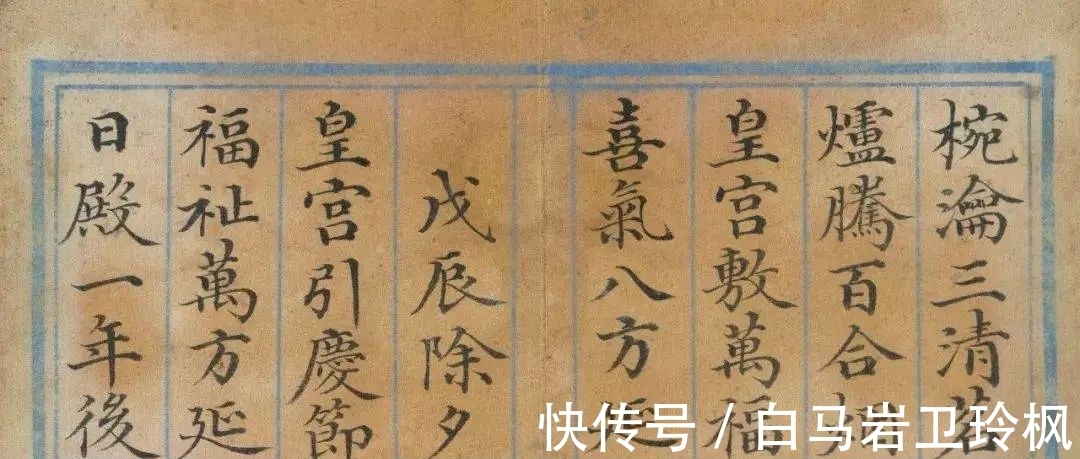 椀瀹三清茗
爐騰百合烟
皇宮敷萬福
喜氣八方延
戊辰除夕
皇宮引慶節
福祉萬方延
日殿一年後
快传号 / 白马岩卫玲枫